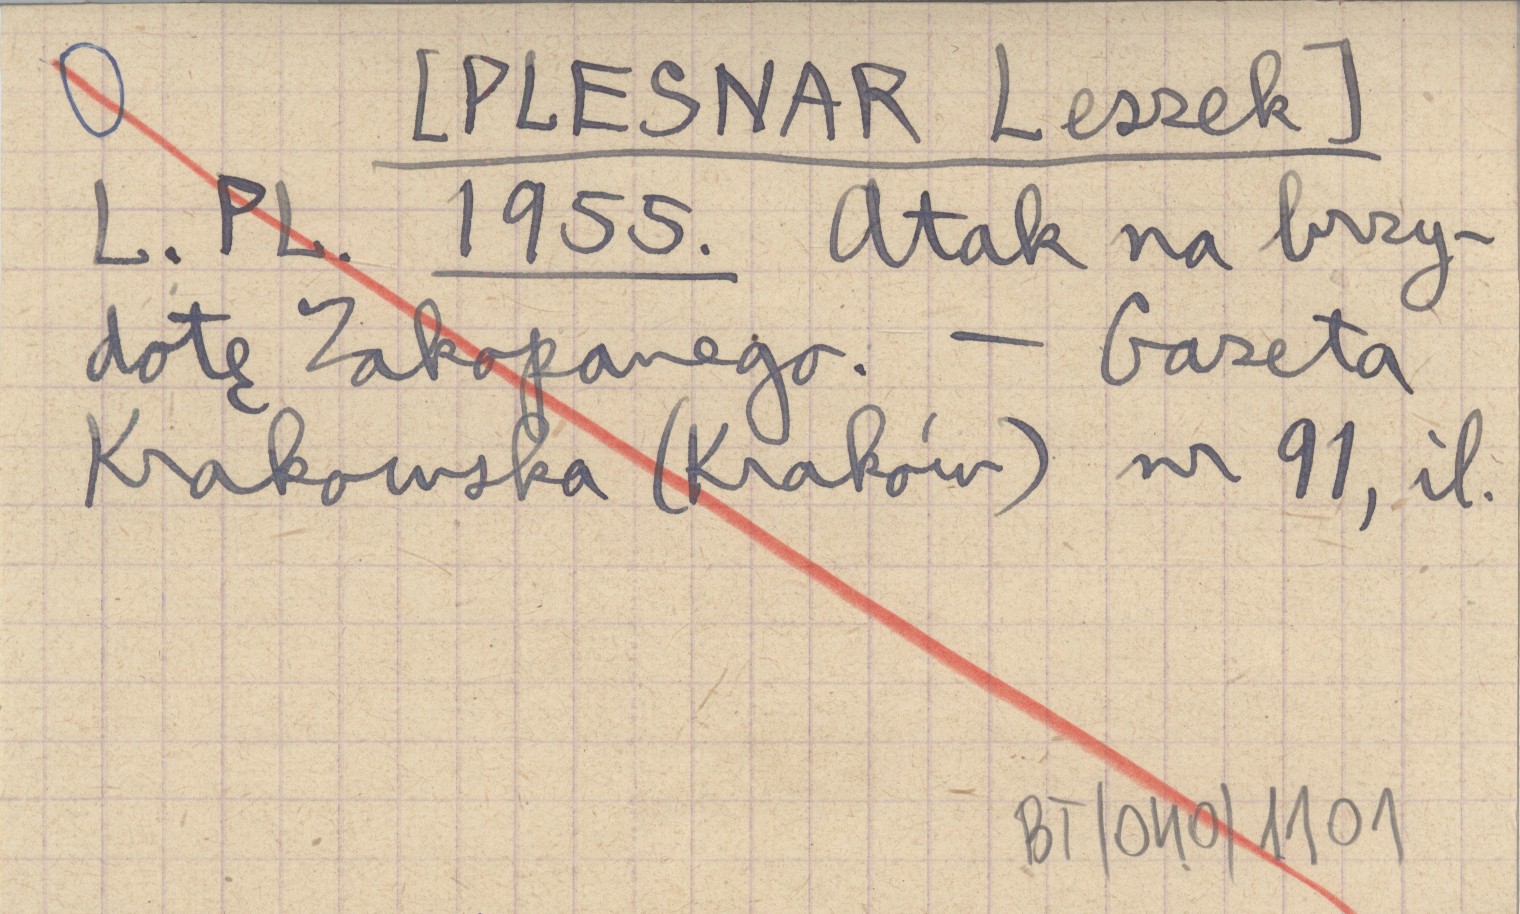 [PLESNAR Leszek]
L. PL. 1955. Atak na brzy-
dotę Zakopanego. — Gazeta
Krakowska (Kraków) nr 91, il.
BT/040/1101